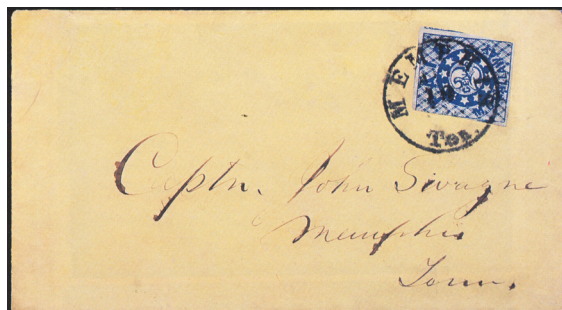 MEMPHIS
Ten.
Captn. John Sivagne
Memphis
Tenn.